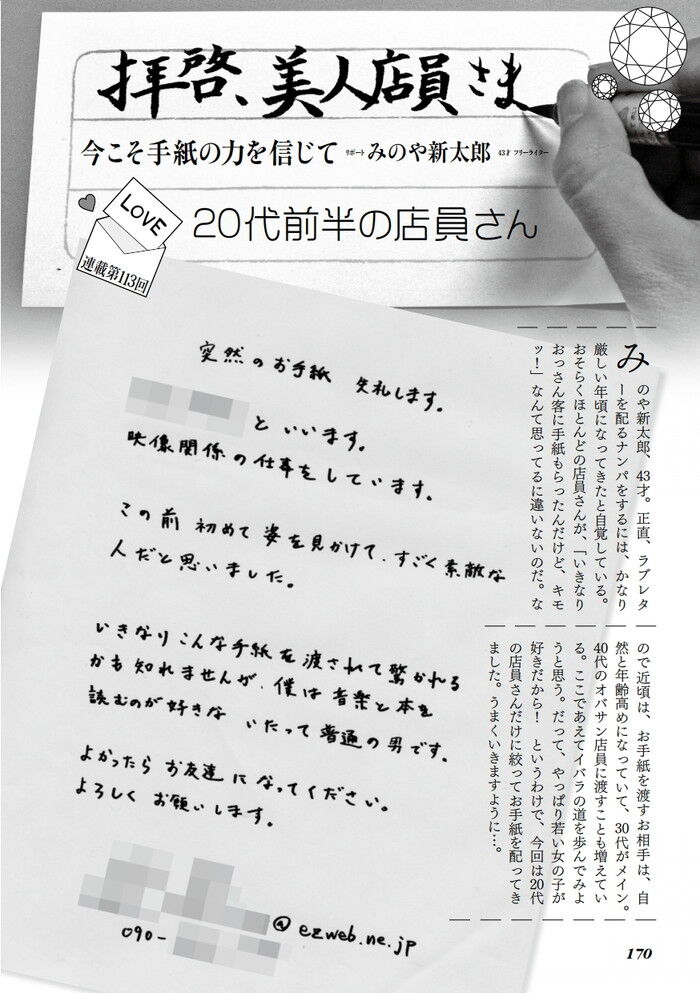 拝啓、美人店員さま
今こそ手紙の力を信じて リポート みのや新太郎 43才 フリーライター
LOVE
連載第113回
20代前半の店員さん
突然のお手紙 失礼します。
といいます。
映像関係の仕事をしています。
この前 初めて 姿を見かけて、すごく素敵な
人だと思いました。
いきなりこんな手紙を渡されて驚かれる
かも知れませんが、僕は音楽と本を
読むのが好きな いたって普通の男です。
よかったら お友達になってください。
よろしく お願いします。
@ezweb.ne.jp
090-
みのや新太郎、43才。正直、ラブレタ
ーを配るナンパをするには、かなり
厳しい年頃になってきたと自覚している。
おそらくほとんどの店員さんが、「いきなり
おっさん客に手紙もらったんだけど、キモ
ッ!」なんて思ってるに違いないのだ。な
ので近頃は、お手紙を渡すお相手は、自
然と年齢高めになっていて、30代がメイン。
40代のオバサン店員に渡すことも増えてい
る。ここであえてイバラの道を歩んでみよ
うと思う。だって、やっぱり若い女の子が
好きだから! というわけで、今回は20代
の店員さんだけに絞ってお手紙を配ってき
ました。うまくいきますように…。
170